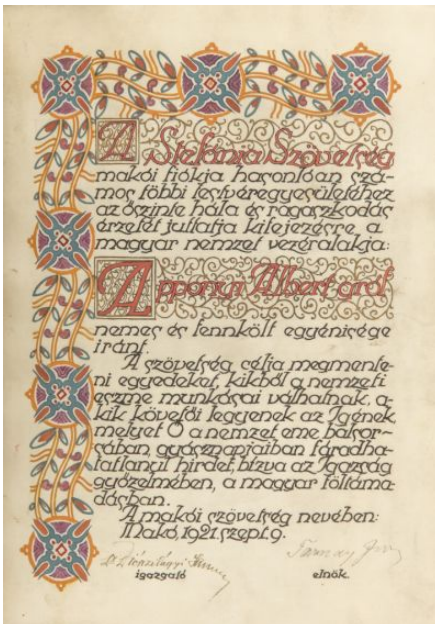 A Stefánia Szövetség
makói fiókja hasonlóan szá-
mos többi testvéregyesületéhez
az őszinte hála és ragaszkodás
érzetét juttatja kifejezésre a
magyar nemzet vezéralakja:
Apponyi Albert gróf
nemes és fennkölt egyénisége
iránt.
A szövetség célja megmente-
ni egyedeket, kikből a nemzeti
eszme munkásai válhatnak, a-
kik követői legyenek az Igének
melyet Ő a nemzet eme balsor-
sában, gyásznapjaiban fáradha-
tatlanul hirdet, bízva az Igazság
győzelmében, a magyar föltáma-
dásban.
A makói szövetség nevében:
Makó, 1921. szept. 9.
igazgató elnök.